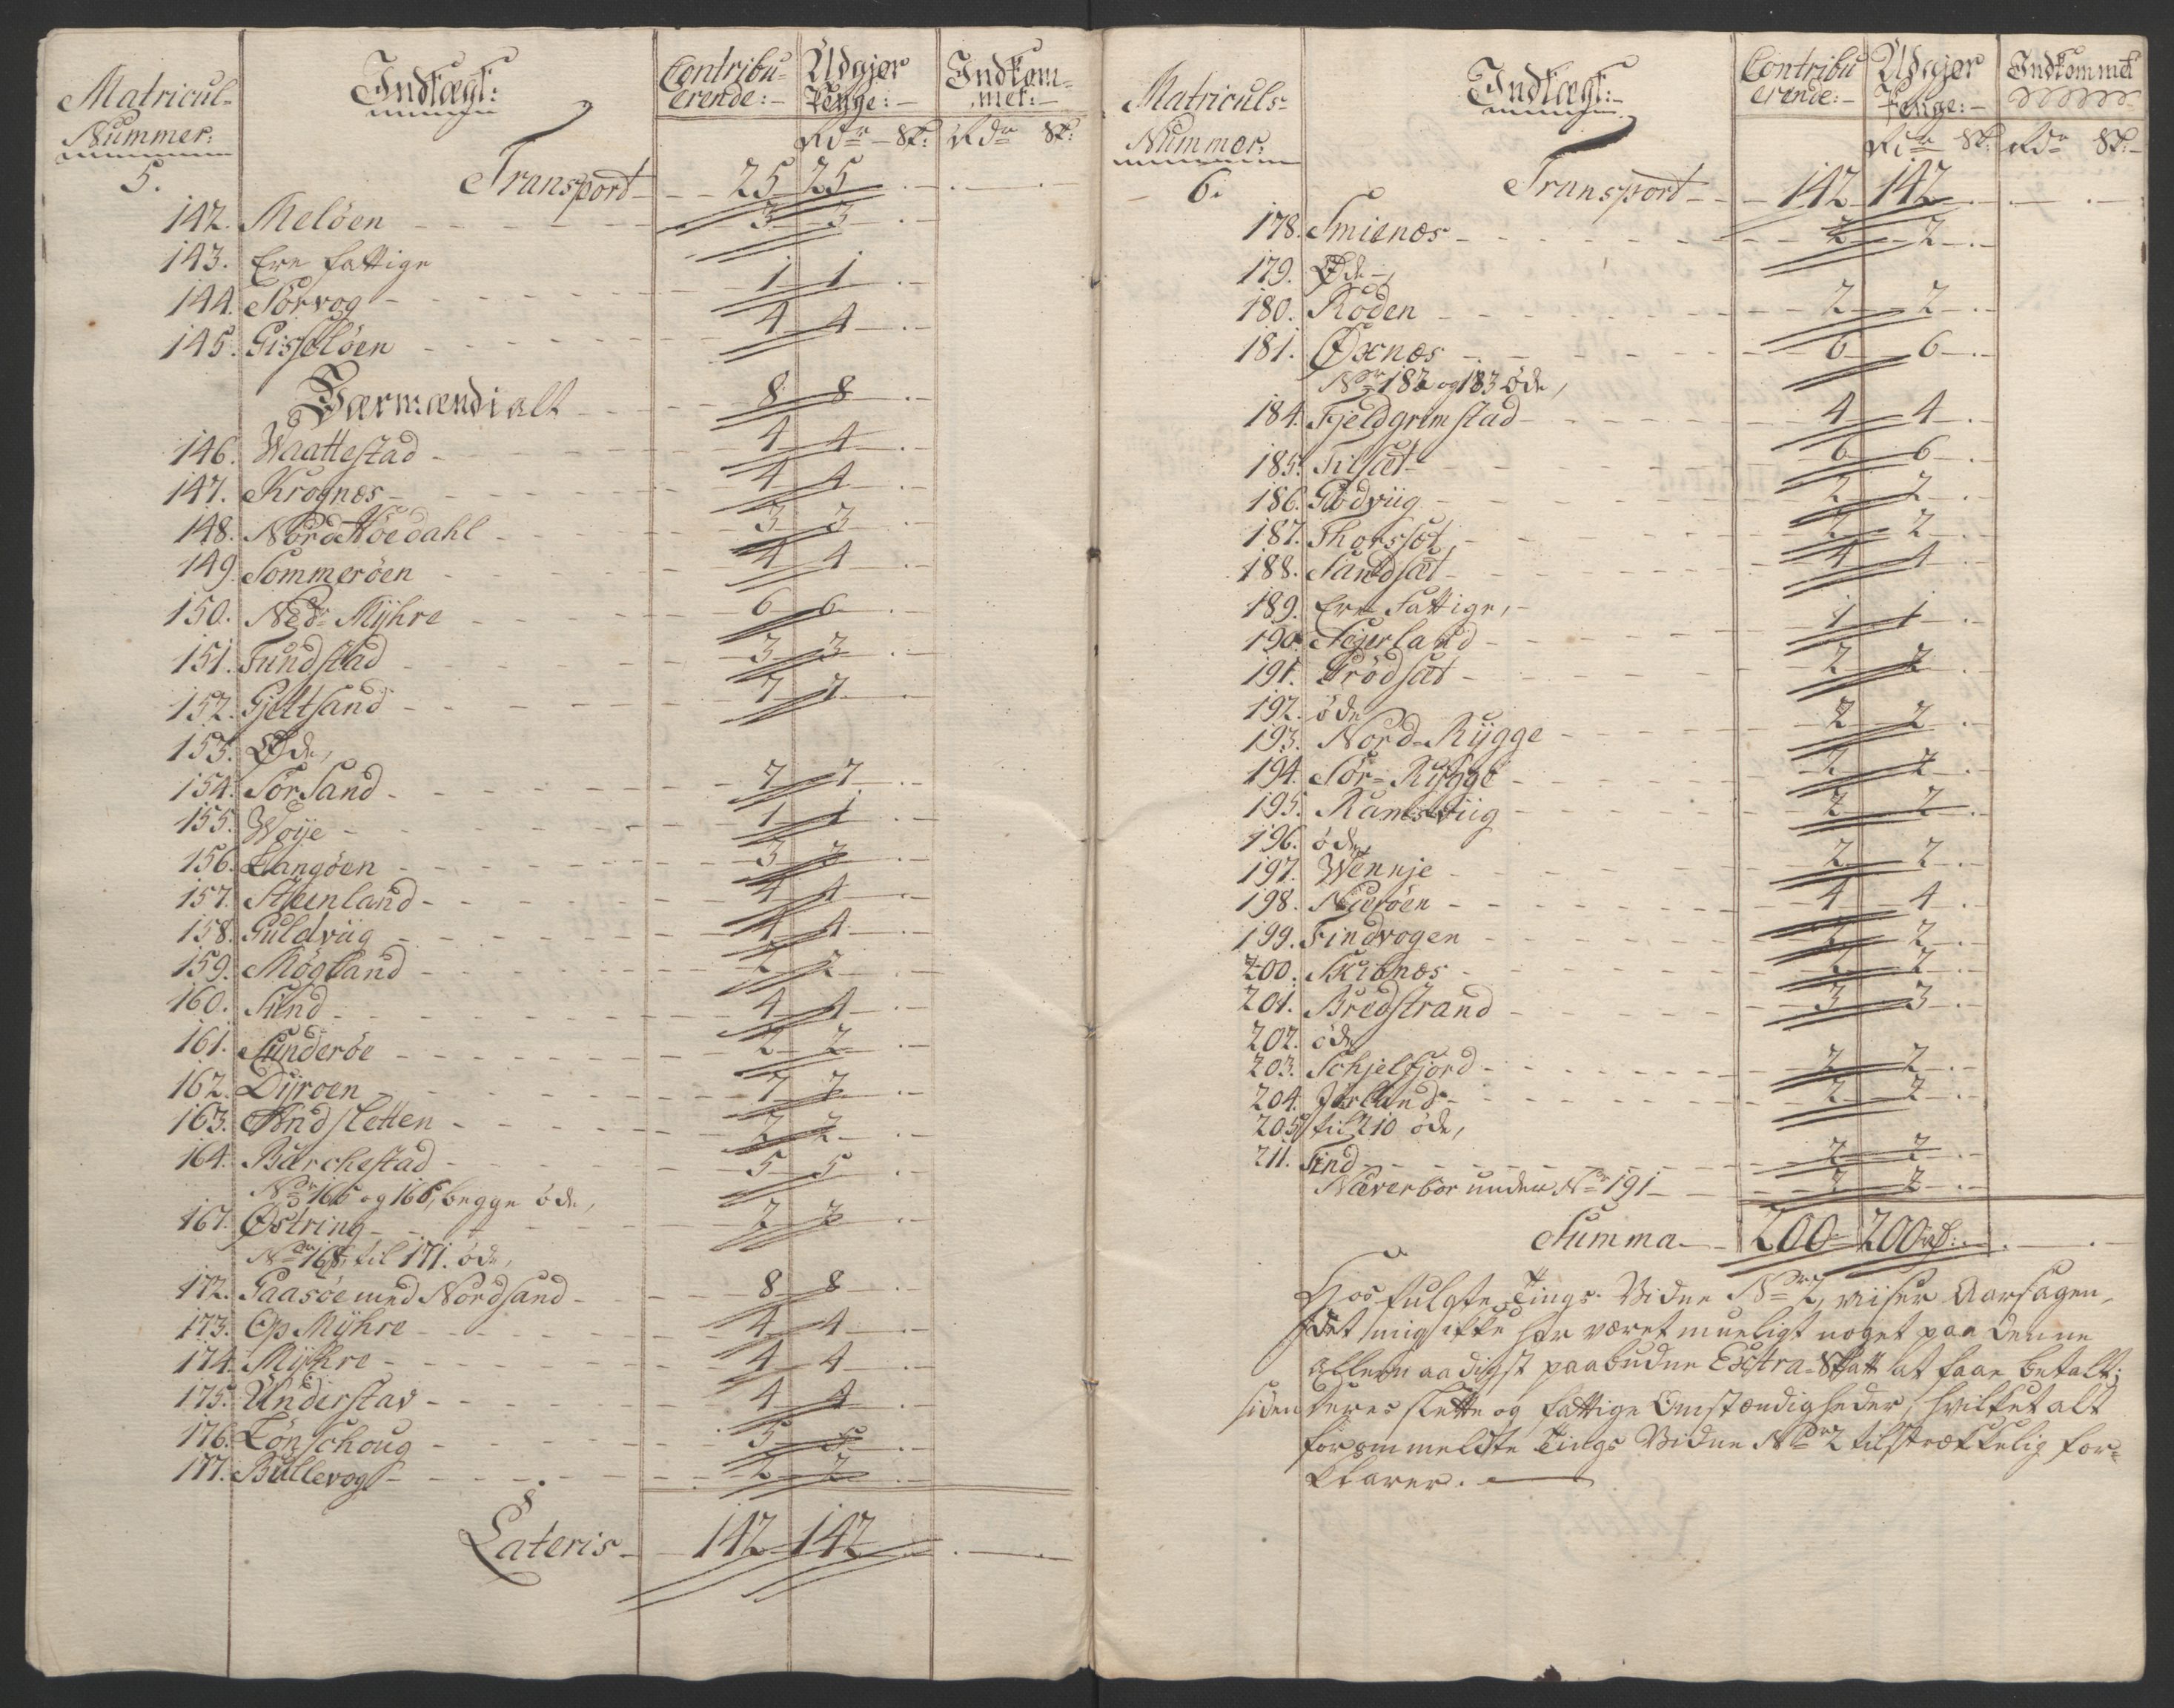 Matricul- Indtægt: Contribu- Udgjør Indkom-
Nummer: erende:- Penge:- met:-
Rdr - Sk: Rdr Sk:
5. Transport - - 25 25 . -
142. Meløen - - 3 - 3 . -
143. Ere fattige
144. Sørvog - - 1 - 1 . -
145. Gisseløen - - 4 - 4 . -
Værmænd i alt - 8 - 8 . -
146. Waattestad - 4 - 4 . -
147. Krognes - 4 - 4 . -
148. Nord Høedahl - 3 - 3 . -
149. Sommerøen - 4 - 4 . -
150. Nedr Mÿhre - 6 - 6 . -
151. Tundstad - 3 - 3 . -
152. Gieltsand - 7 - 7 . -
153. Øde,
154. Sør Sand - 7 - 7 . -
155. Woije - 1 - 1 . -
156. Langøen - 3 - 3 . -
157. Steenland - 4 - 4 . -
158. Guldviig - 4 - 4 . -
159. Møgland - 2 - 2 . -
160. Sund - 4 - 4 . -
161. Sunderøe - 2 - 2 . -
162. Dÿroen - 7 - 7 . -
163. Sandsletten - 2 - 2 . -
164. Barchestad - 5 - 5 . -
Nr 165 og 166, begge øde,
167. Østring - 2 - 2 . -
Nr 168, til 171. øde,
172. Gaasøe med Nordsand - 8 - 8 . -
173. Op Mÿhre - 4 - 4 . -
174. Mÿhre - 4 - 4 . -
175. Understad - 4 - 4 . -
176. Lønschoug - 5 - 5 . -
177. Bullevog - 2 - 2 . -
Lateris - 142 142 . -
Matriculs- Indtægt:- Contribu Udgjør Indkommet
Nummer: erende:- Penge:-
Rdr Sk: Rdr Sk:-
6. Transport - - 142 142 . -
178. Smienæs - 2 - 2 . -
179. Øde -,
180. Røden - 2 - 2 . -
181. Øxnæs - 6 - 6 . -
Nr 182 og 183 øde,
184. Fjeldgrimstad - 4 - 4 . -
185. Tilsæt - 6 - 6 . -
186. Glødviig - 2 - 2 . -
187. Thorssæt - 2 - 2 . -
188. Sandsæt - 4 - 4 . -
189. Ere Fattige, -
190. Stejerland - 1 - 1 . -
191. Frødsæt - 2 - 2 . -
192. øde
193. Nord-Rÿgge - 2 - 2 . -
194. Sør-Rÿgge - 2 - 2 . -
195. Ramsviig - 2 - 2 . -
196. øde,
197. Wennje - 2 - 2 . -
198. Nierøen - 4 - 4 . -
199. Findvogen - 2 - 2 . -
200. Skibnæs - 2 - 2 . -
201. Bredstrand - 3 - 3 . -
202. øde
203. Schjelfjord - 2 - 2 . -
204. Jørland - 2 - 2 . -
205 til 210 øde,
211. Find - 2 - 2 . -
Næverbør under Nr 191 - 2 - 2 . -
Summa - 200 - 200 rd: . -
Hosfulgte Tings-Vidne Nr 2, viiser Aarsagen,
det mig ikke har været mueligt noget paa denne
allernaadigst paabudne Extra-Skatt at faae betalt;
siden deres slette og fattige Omstændigheder, hvilket alt
forommeldte Tings Vidne Nr 2 tilstrækkelig for-
klarer. -